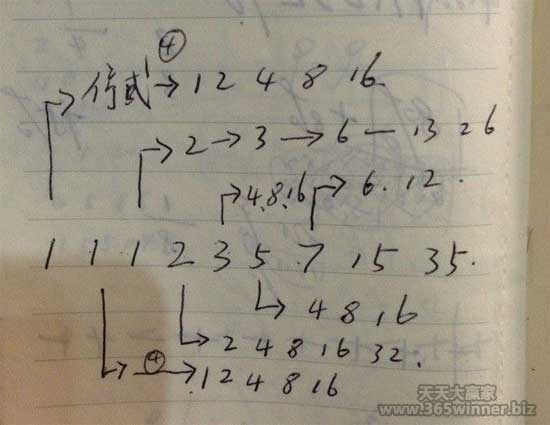 ④
停 → 1 2 4 8 16
2 → 3 → 6 — 13 26
4.8.16 → 6.12.
1 1 1 2 3 5 7 15 35.
→ 4 8 16
→ 2 4 8 16 32.
④
→ 1 2 4 8 16
天天大赢家
www.365winner.biz